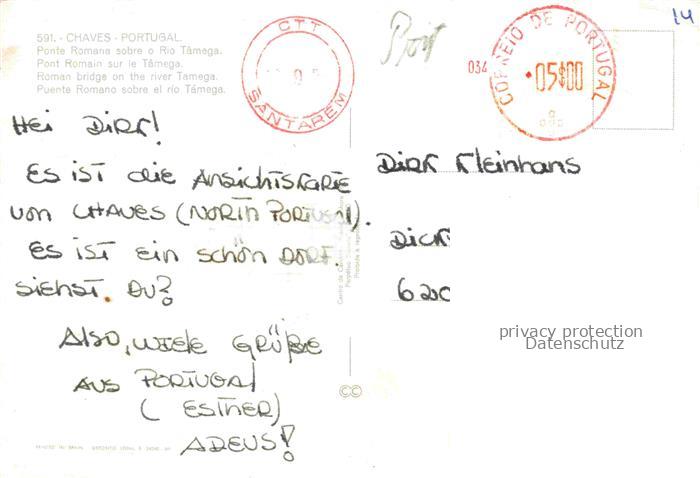 591. - CHAVES - PORTUGAL.
Ponte Romana sobre o Rio Tâmega.
Pont Romain sur le Tâmega.
Roman bridge on the river Tamega.
Puente Romano sobre el río Támega.
CTT
SANTAREM
Port
034
CORREIO DE PORTUGAL
05$00
14
Hei Dirk!
Es ist die Ansichtskarte
von CHAVES (North Portugal).
Es ist ein schön Dorf.
Siehst. Du?
Also, wiele Grüße
aus Portugal
(Esther)
ADEUS!
Dirk Kleinhans
Dick
620
privacy protection
Datenschutz